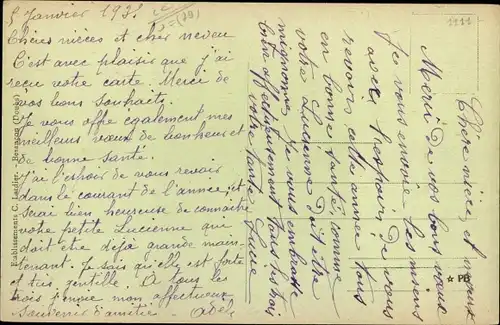 5 Janvier 193
Chères nièces et cher neveu
C'est avec plaisir que j'ai
reçu votre carte. Merci de
vos bons souhaits.
Je vous offre également mes
meilleurs vœux de bonheur et
de bonne santé.
J'ai l'espoir de vous revoir
dans le courant de l'année, et
serai bien heureuse de connaître
votre petite Lucienne qui
doit être déjà grande main-
tenant. Je sais qu'elle est forte
et très gentille. A tous les
trois  mon affectueux
Souvenir d'amitié. Adèle
Chère nièce et neveux
Merci de vos bons vœux
Je vous envoie les miens
avec l'espoir de vous
revoir cette année tous
en bonne santé, comme
votre Lucienne doit être
mignonne. Je vous embrasse
bien affectueusement tous les trois
votre tante
1111
Etablissements C. Lardier, Besançon (Doubs)
★ PB